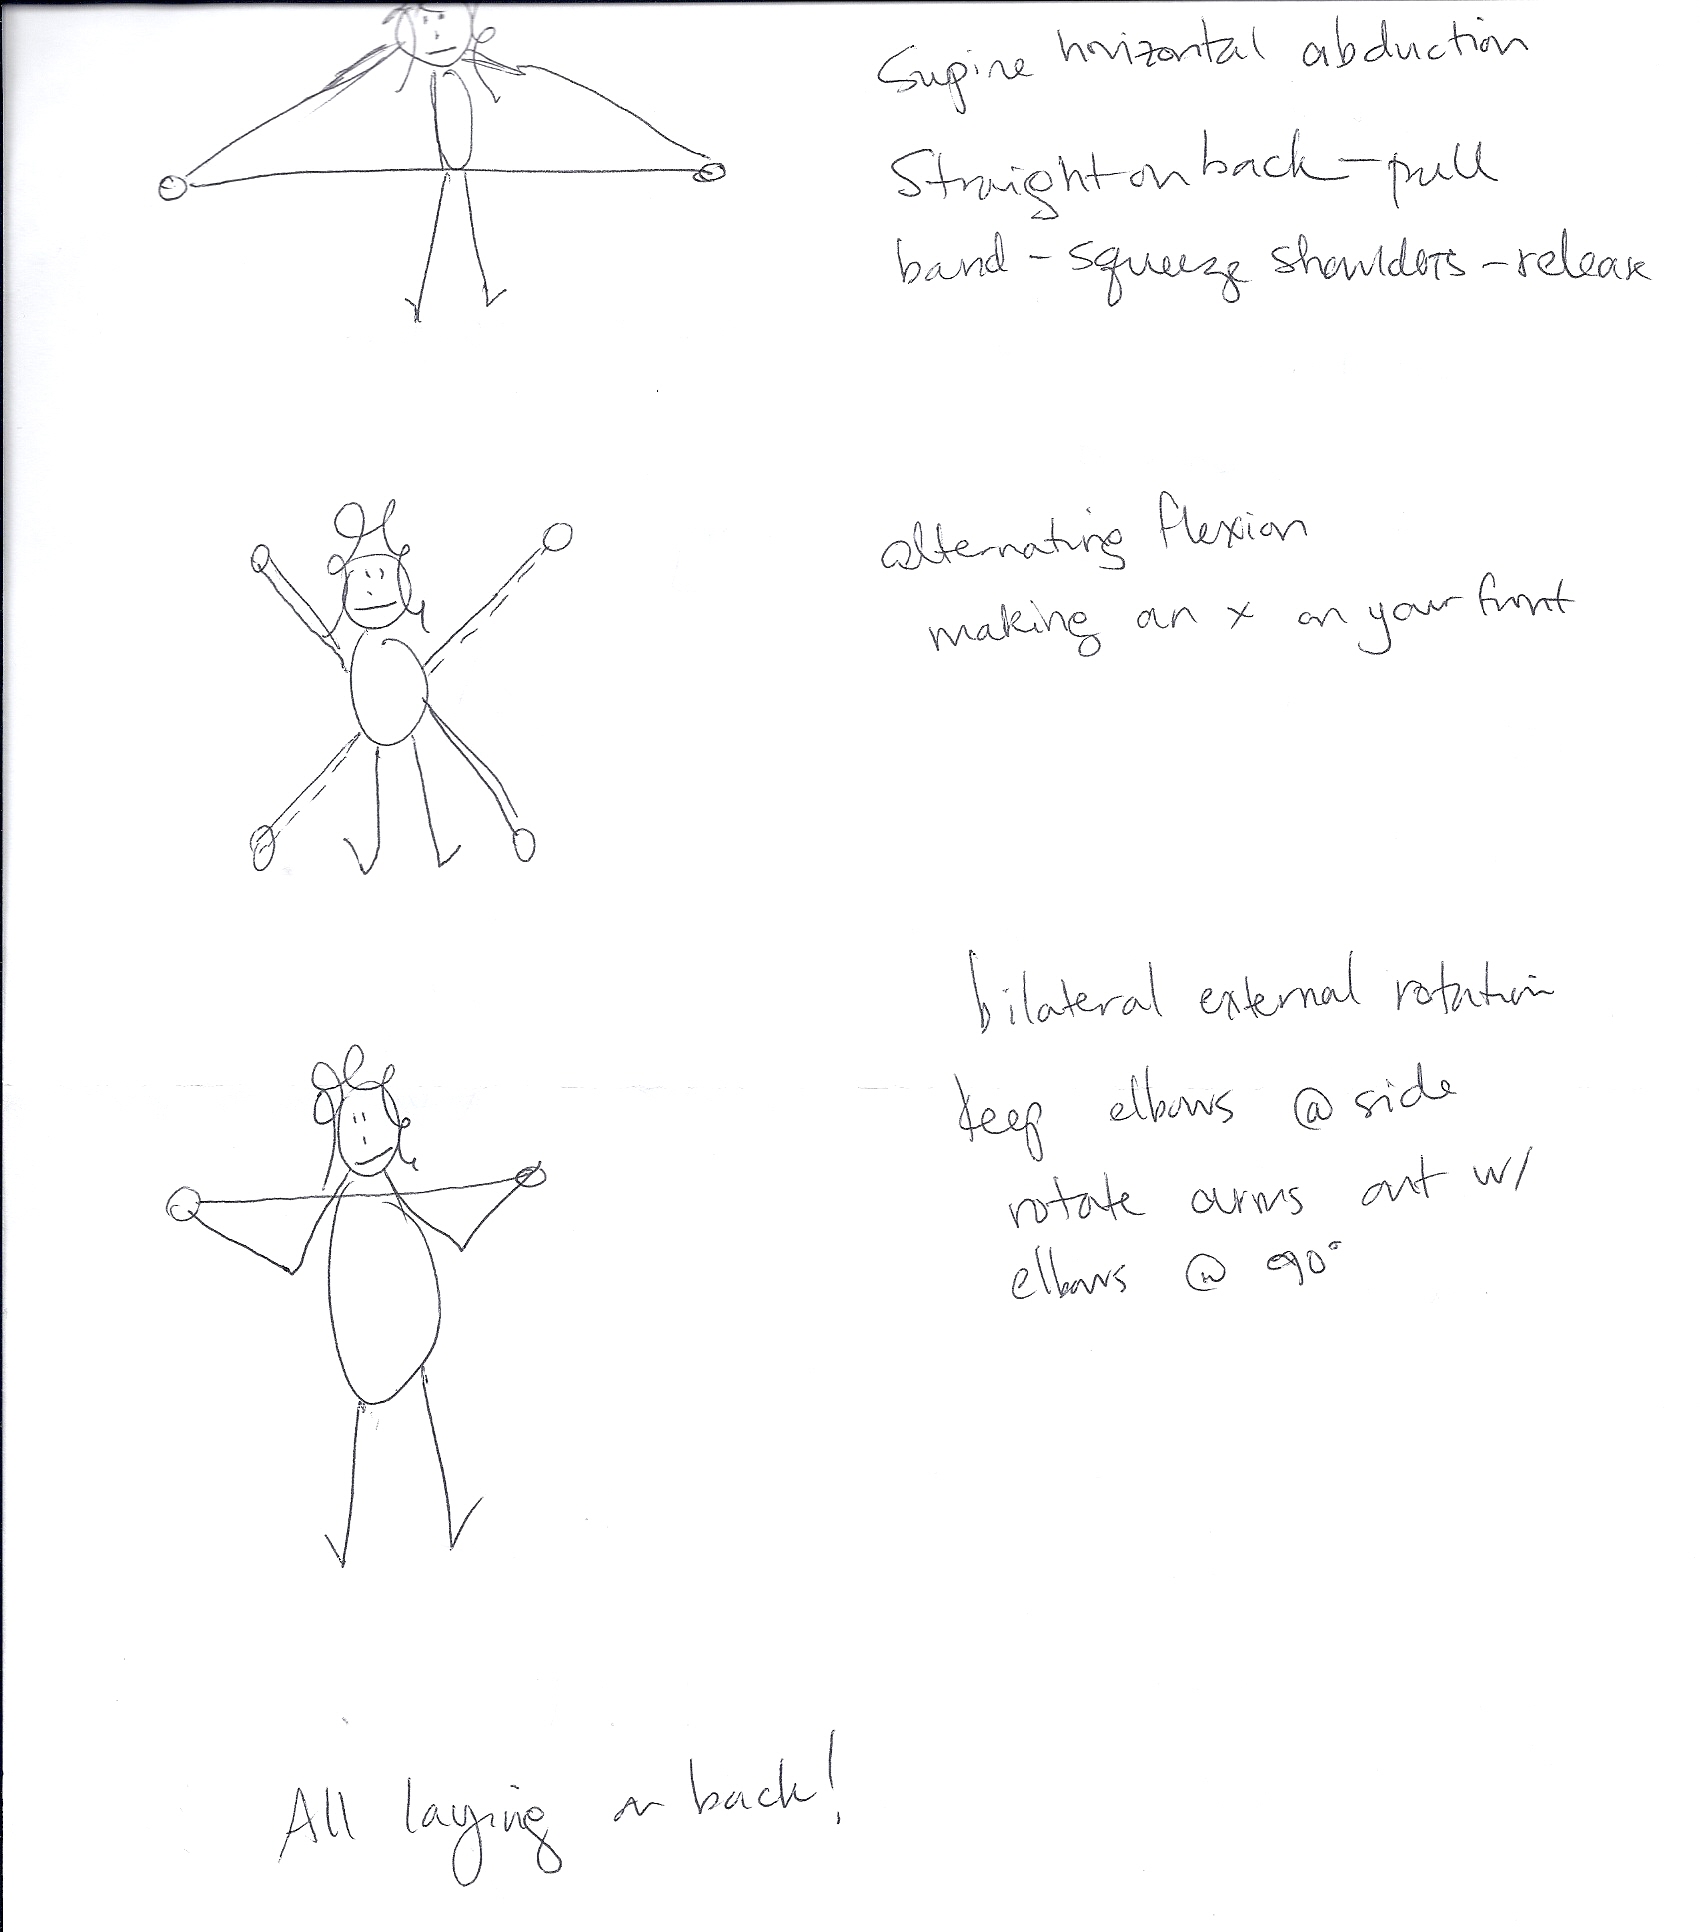 Supine horizontal abduction
Straight on back - pull
band - squeeze shoulders - release
alternating flexion
making an x on your front
bilateral external rotation
keep elbows @ side
rotate arms out w/
elbows @ 90°
All laying on back!